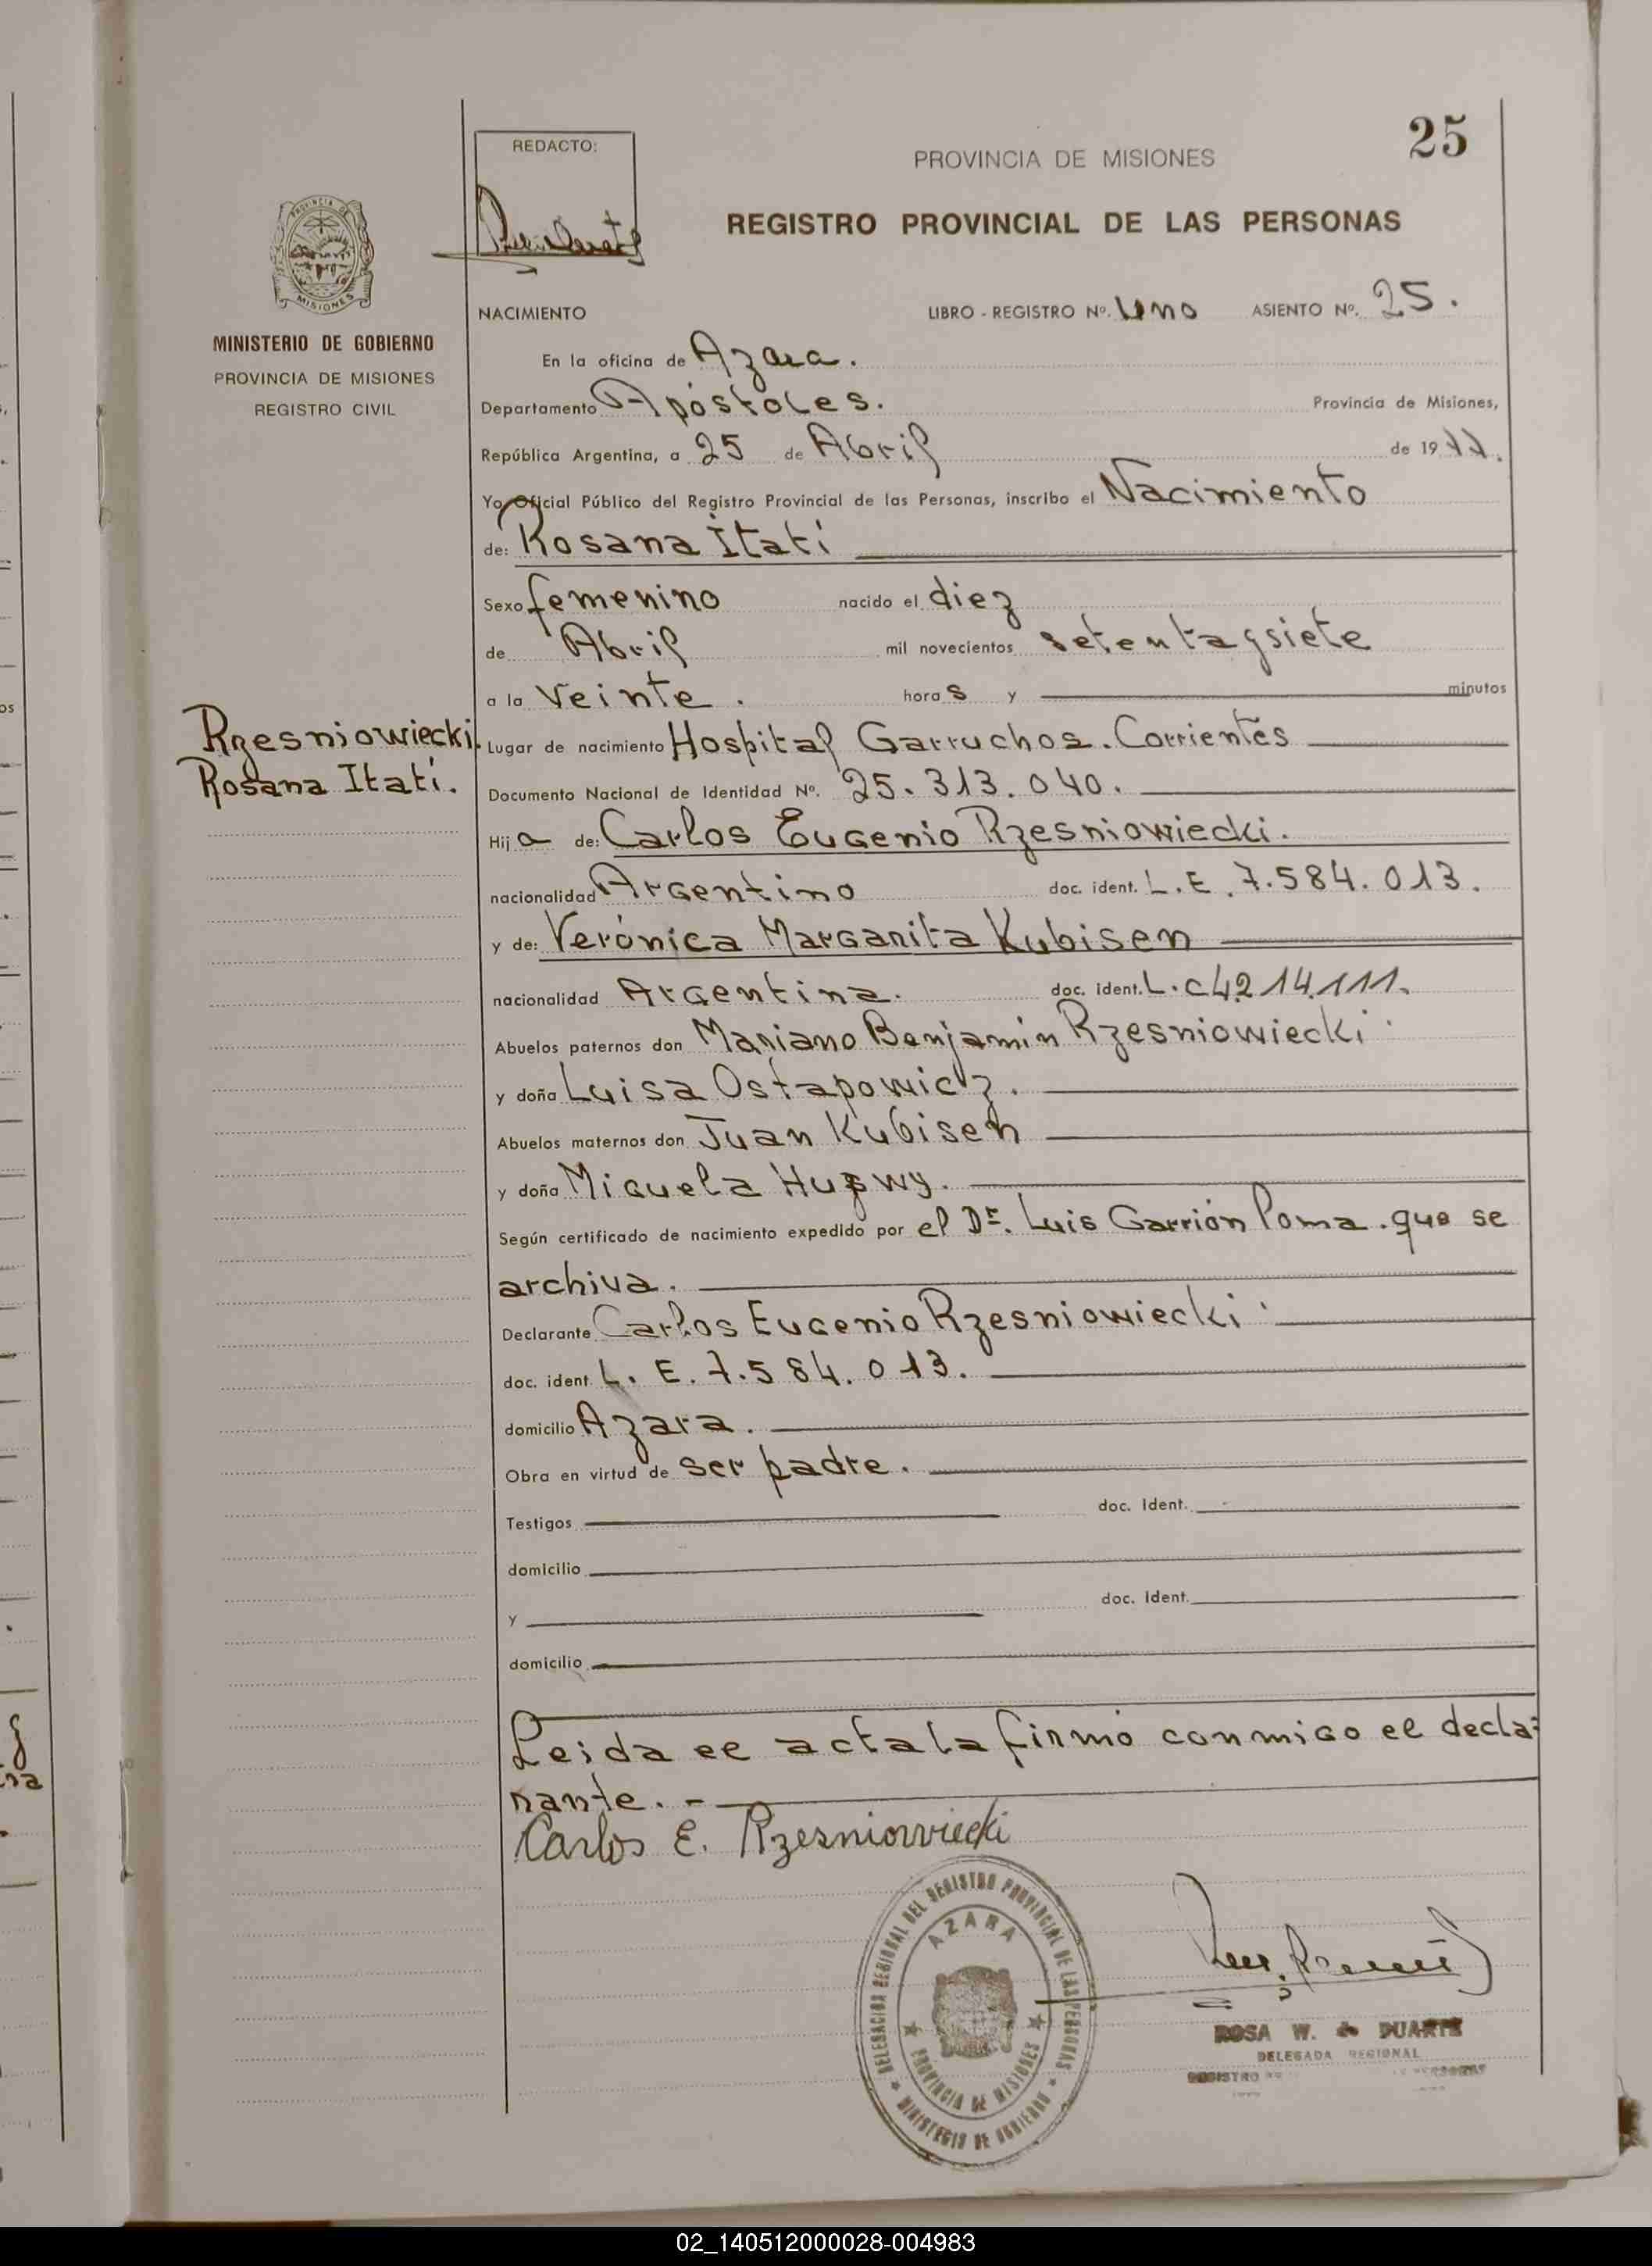 25
REDACTO:
PROVINCIA DE MISIONES
REGISTRO PROVINCIAL DE LAS PERSONAS
PROVINCIA DE
MISIONES
MINISTERIO DE GOBIERNO
PROVINCIA DE MISIONES
REGISTRO CIVIL
NACIMIENTO LIBRO - REGISTRO Nº. Uno ASIENTO Nº. 25.
En la oficina de Azara.
Departamento Apóstoles. Provincia de Misiones,
República Argentina, a 25 de Abril de 1977.
Yo Oficial Público del Registro Provincial de las Personas, inscribo el Nacimiento
de: Rosana Itatí
Sexo femenino nacido el diez
de Abril mil novecientos setentaysiete
a la veinte. horas y minutos
Rzesniowiecki
Rosana Itatí.
Lugar de nacimiento Hospital Garruchos. Corrientes
Documento Nacional de Identidad Nº. 25.313.040.
Hija de: Carlos Eugenio Rzesniowiecki.
nacionalidad Argentino doc. ident. L.E. 7.584.013.
y de: Verónica Margarita Kubisen
nacionalidad Argentina. doc. ident. L.C 4214.111.
Abuelos paternos don Mariano Benjamín Rzesniowiecki.
y doña Luisa Ostapowicz.
Abuelos maternos don Juan Kubisen
y doña Miguela
Según certificado de nacimiento expedido por el Dr. Luis Garrión Poma. que se
archiva.
Declarante Carlos Eugenio Rzesniowiecki.
doc. ident. L.E. 7.584.013.
domicilio Azara.
Obra en virtud de ser padre.
Testigos doc. ident.
domicilio
y doc. ident.
domicilio
Leida el acta la firmó conmigo el decla-
rante. -
Carlos E. Rzesniowiecki
DELEGACION REGIONAL DEL REGISTRO PROVINCIAL DE LAS PERSONAS
AZARA
PROVINCIA DE MISIONES
MINISTERIO DE GOBIERNO
ROSA W. de DUARTE
DELEGADA REGIONAL
REGISTRO
02_140512000028-004983